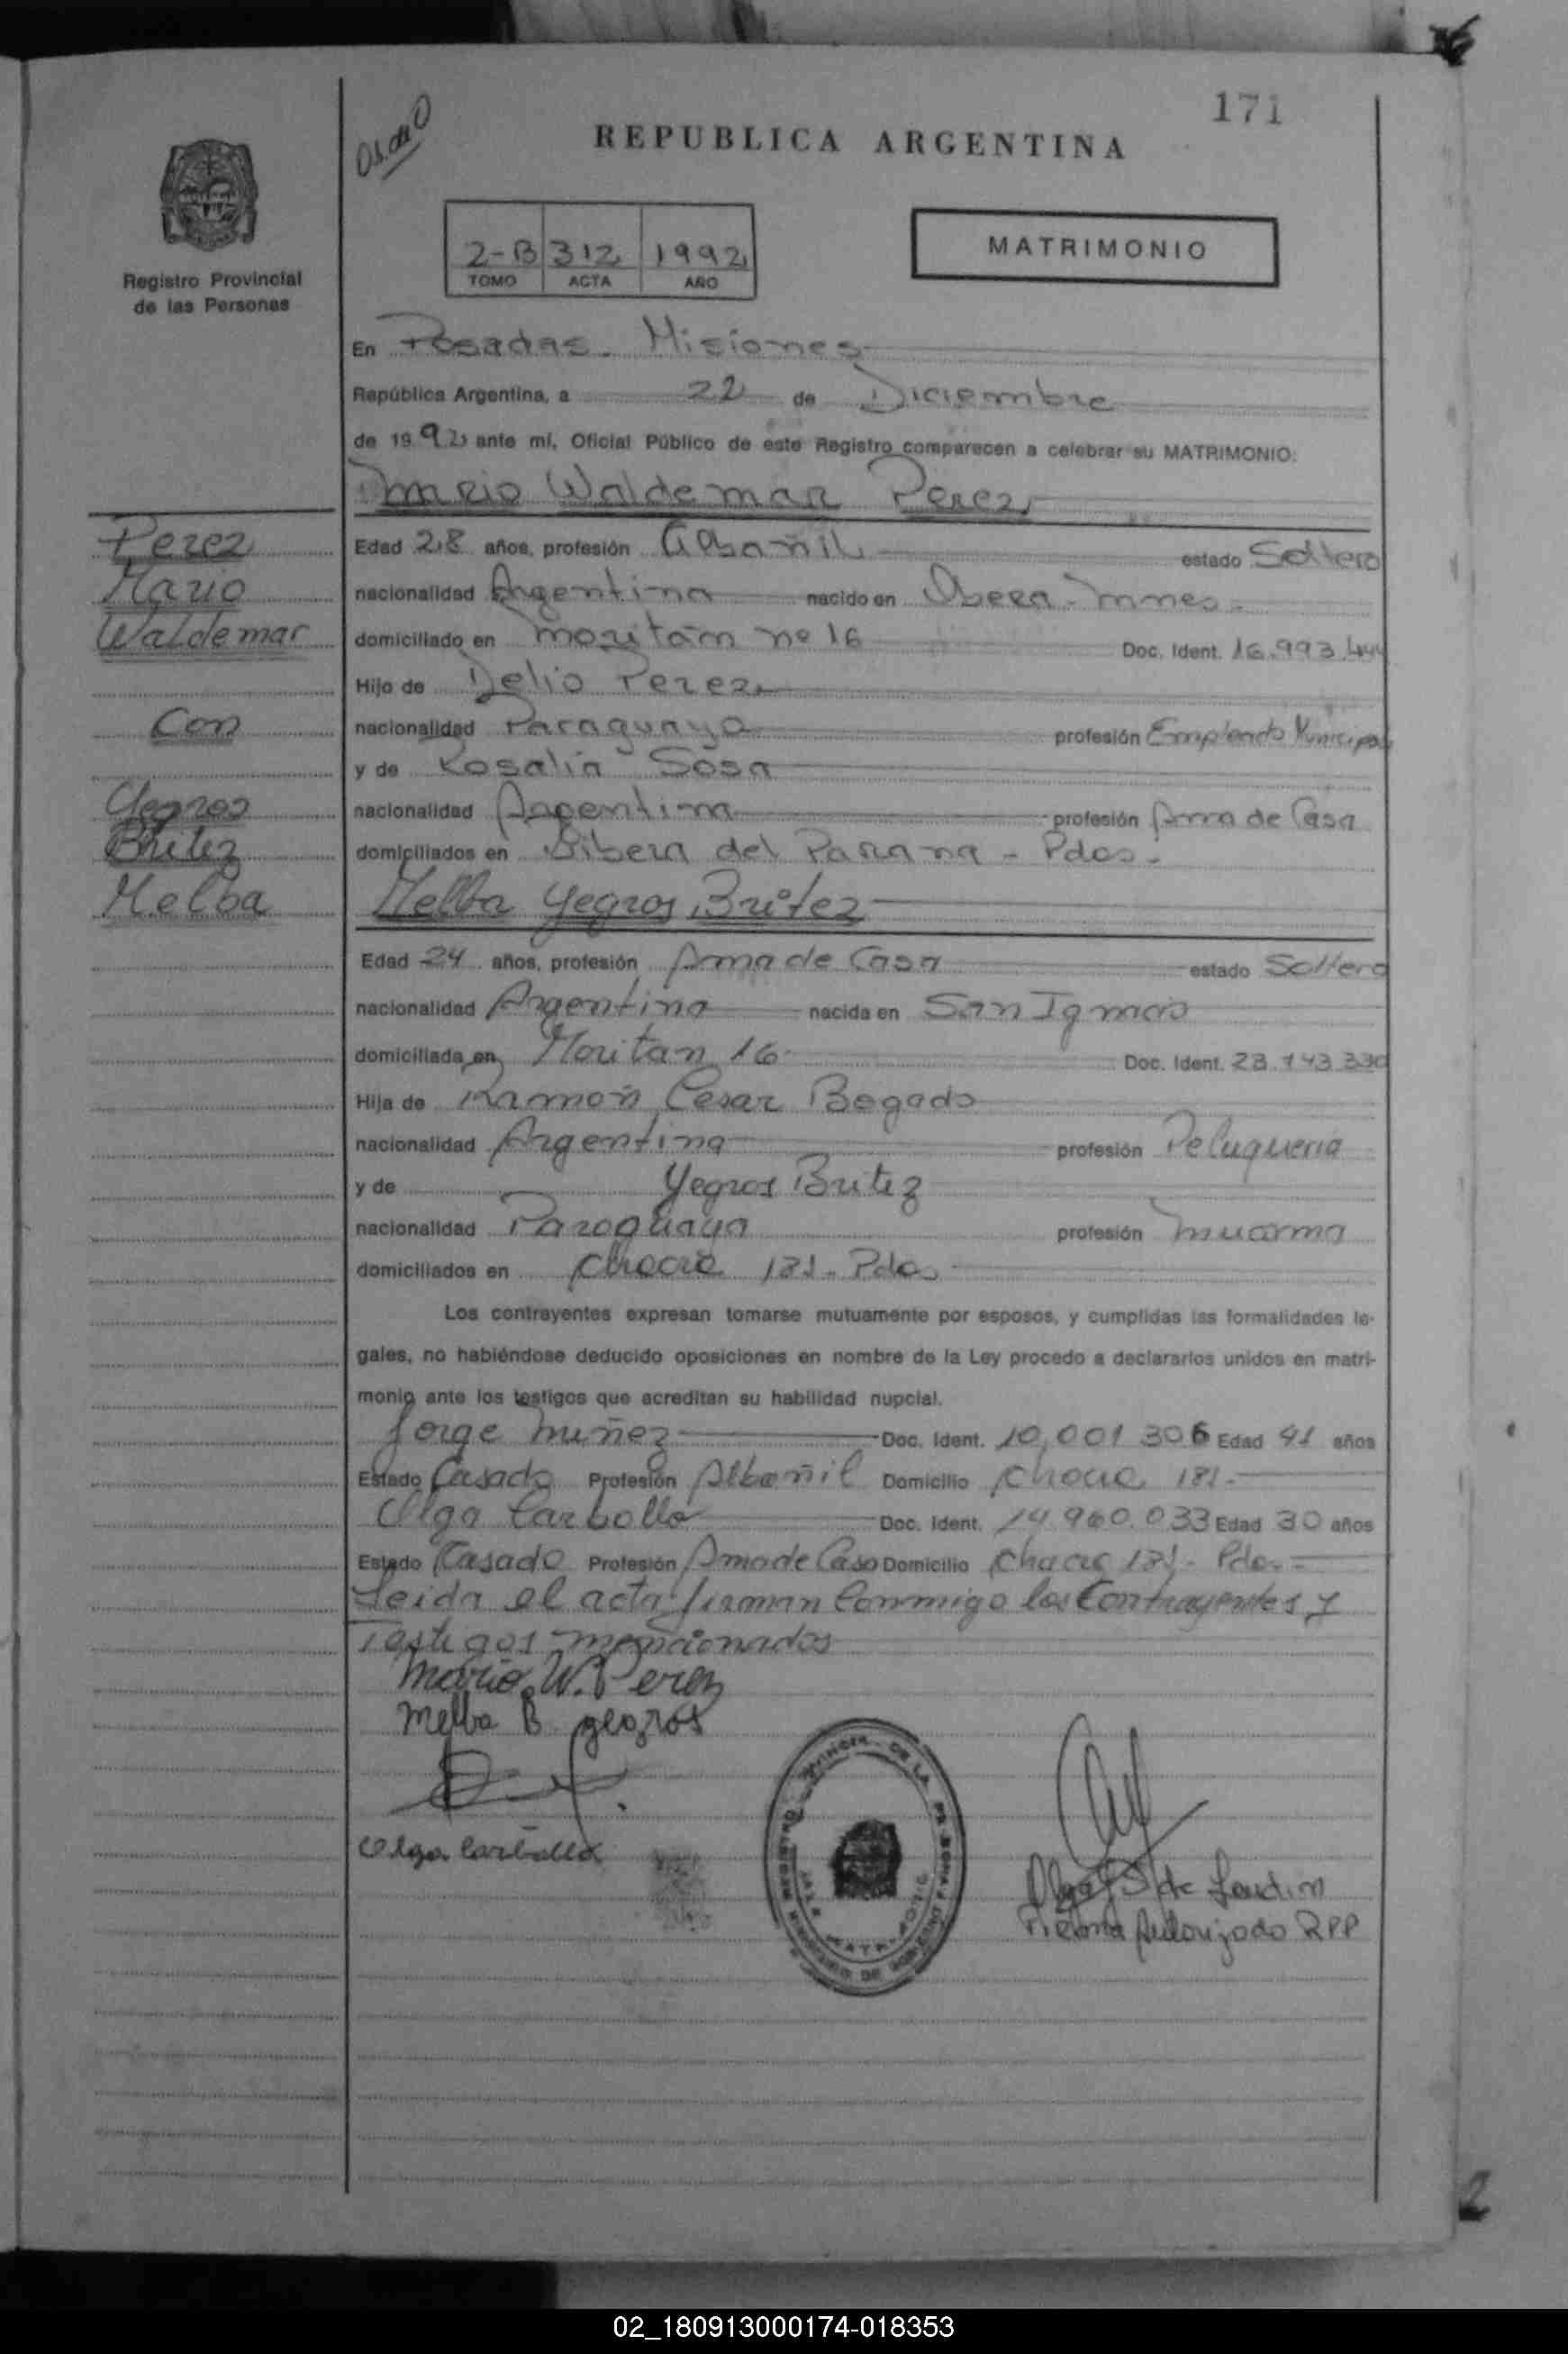 171
REPUBLICA ARGENTINA
Registro Provincial
de las Personas
2-B 312 1992
TOMO ACTA AÑO
MATRIMONIO
En Posadas. Misiones
República Argentina, a 22 de Diciembre
de 1992 ante mí, Oficial Público de este Registro comparecen a celebrar su MATRIMONIO:
Mario Waldemar Perez
Perez
Mario
Waldemar
Con
Yegros
Britez
Melba
Edad 28 años, profesión Albañil estado Soltero
nacionalidad Argentina nacido en Obera - Mnes.
domiciliado en Moritan nº 16 Doc. Ident. 16.993.444
Hijo de Delio Perez
nacionalidad Paraguaya profesión Empleado Municipal
y de Rosalia Sosa
nacionalidad Argentina profesión Ama de Casa
domiciliados en Ribera del Parana - Pdas.
Melba Yegros Britez
Edad 24 años, profesión Ama de Casa estado Soltera
nacionalidad Argentina nacida en San Ignacio
domiciliada en Moritan 16 Doc. Ident. 23.143.330
Hija de Ramón Cesar Bogado
nacionalidad Argentina profesión Peluqueria
y de Yegros Britez
nacionalidad Paraguaya profesión
domiciliados en Chacra 181 - Pdas
Los contrayentes expresan tomarse mutuamente por esposos, y cumplidas las formalidades le-
gales, no habiéndose deducido oposiciones en nombre de la Ley procedo a declararlos unidos en matri-
monio ante los testigos que acreditan su habilidad nupcial.
Jorge Muñez Doc. Ident. 10.001 306 Edad 41 años
Estado Casado Profesión Albañil Domicilio Chacra 181.
Olga Carballo Doc. Ident. 14.960.033 Edad 30 años
Estado Casado Profesión Ama de Casa Domicilio Chacra 181 - Pdas.
Leida el acta firman Conmigo los Contrayentes y
Testigos mencionados
Mario W. Perez
Melba B yegros
Olga Carballo
Olga S de
Firma Autorizado RPP
02_180913000174-018353